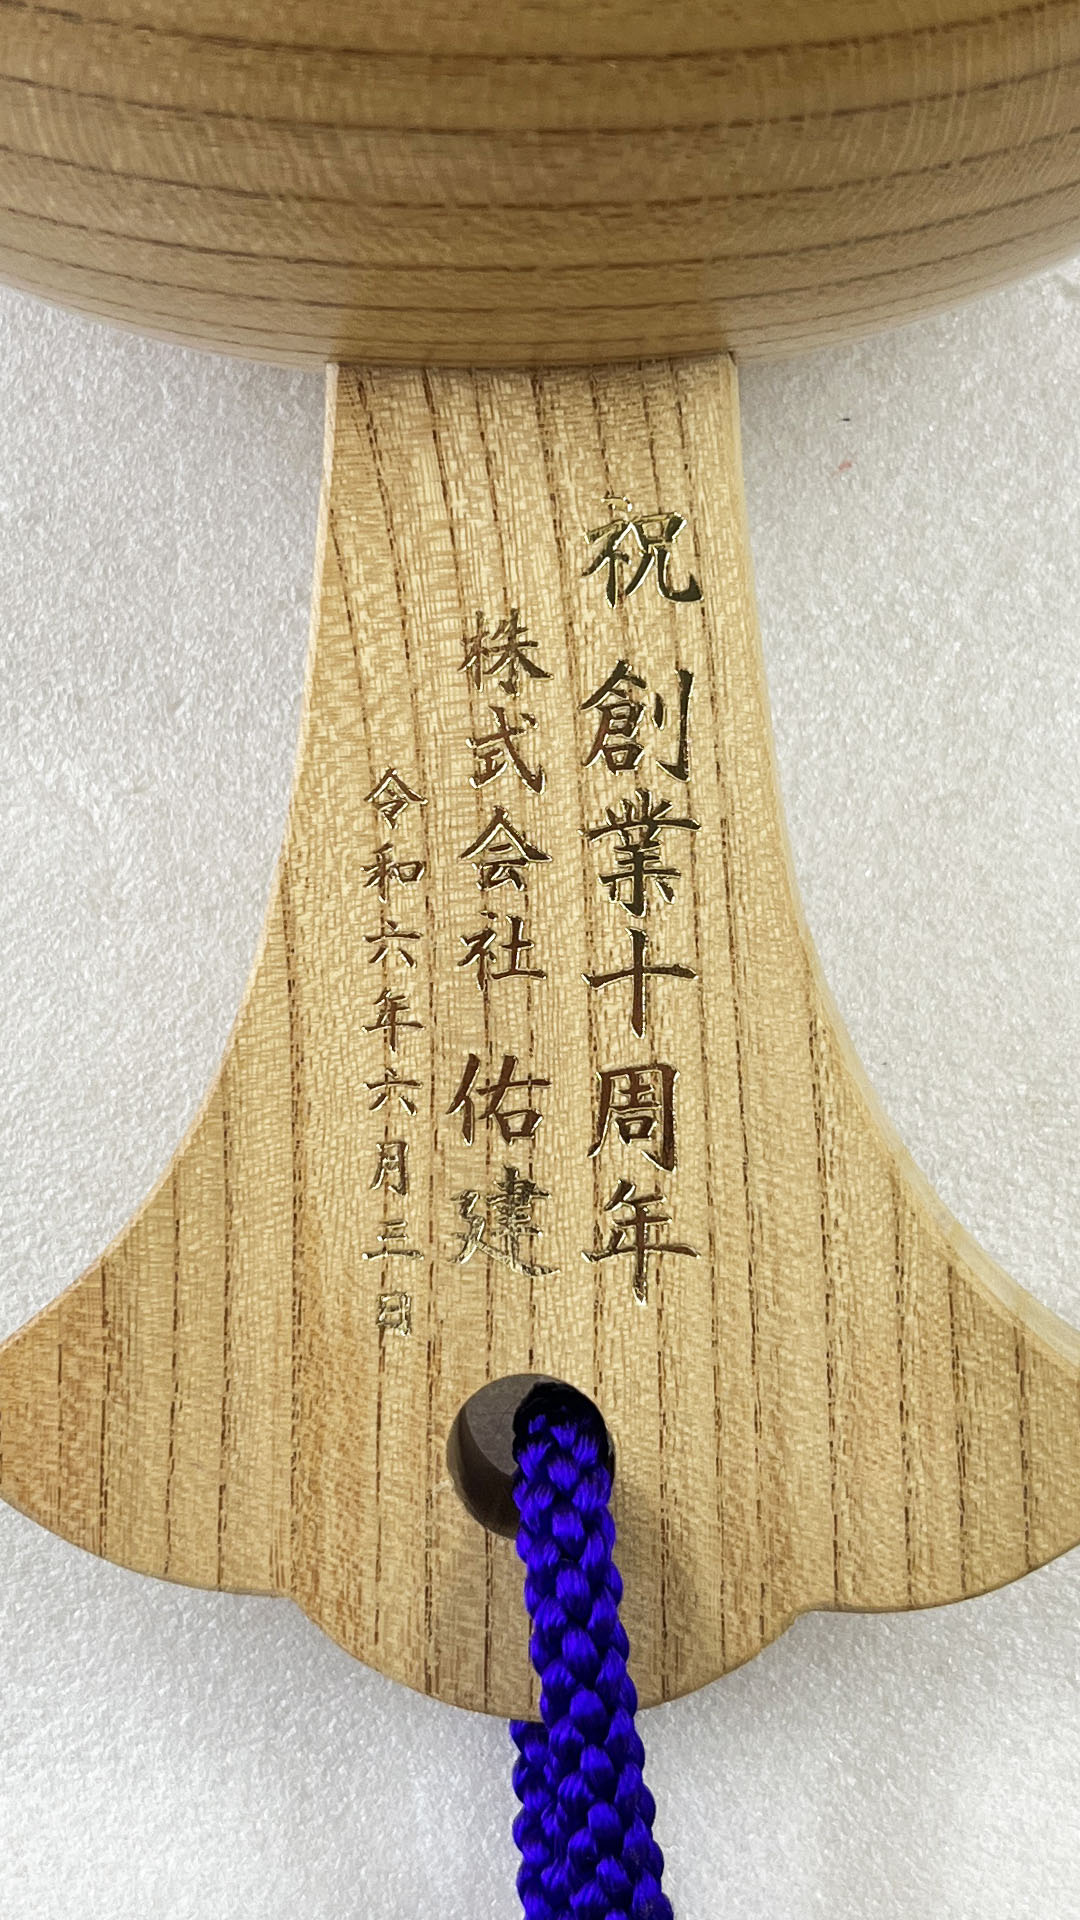 祝 創業十周年
株式会社 佑建
令和六年六月三日